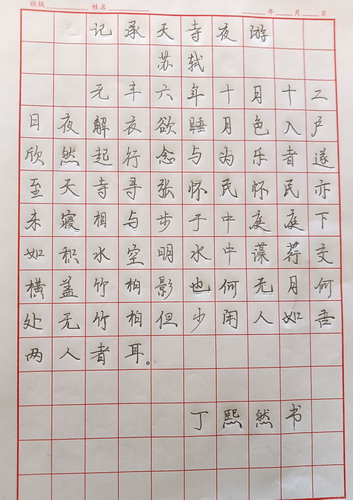 班级 姓名 年 月 日
记承天寺夜游
苏轼
元丰六年十月十二
日夜解夜欲睡月色入户
欣然起行念与为乐者遂
至天寺寻张怀民怀民亦
来寝相与步于中庭庭下
如积水空明水中谋荇交
横盖竹柏影也何无月何
处无竹柏但少闲人如吾
两人者耳。
丁熙然书